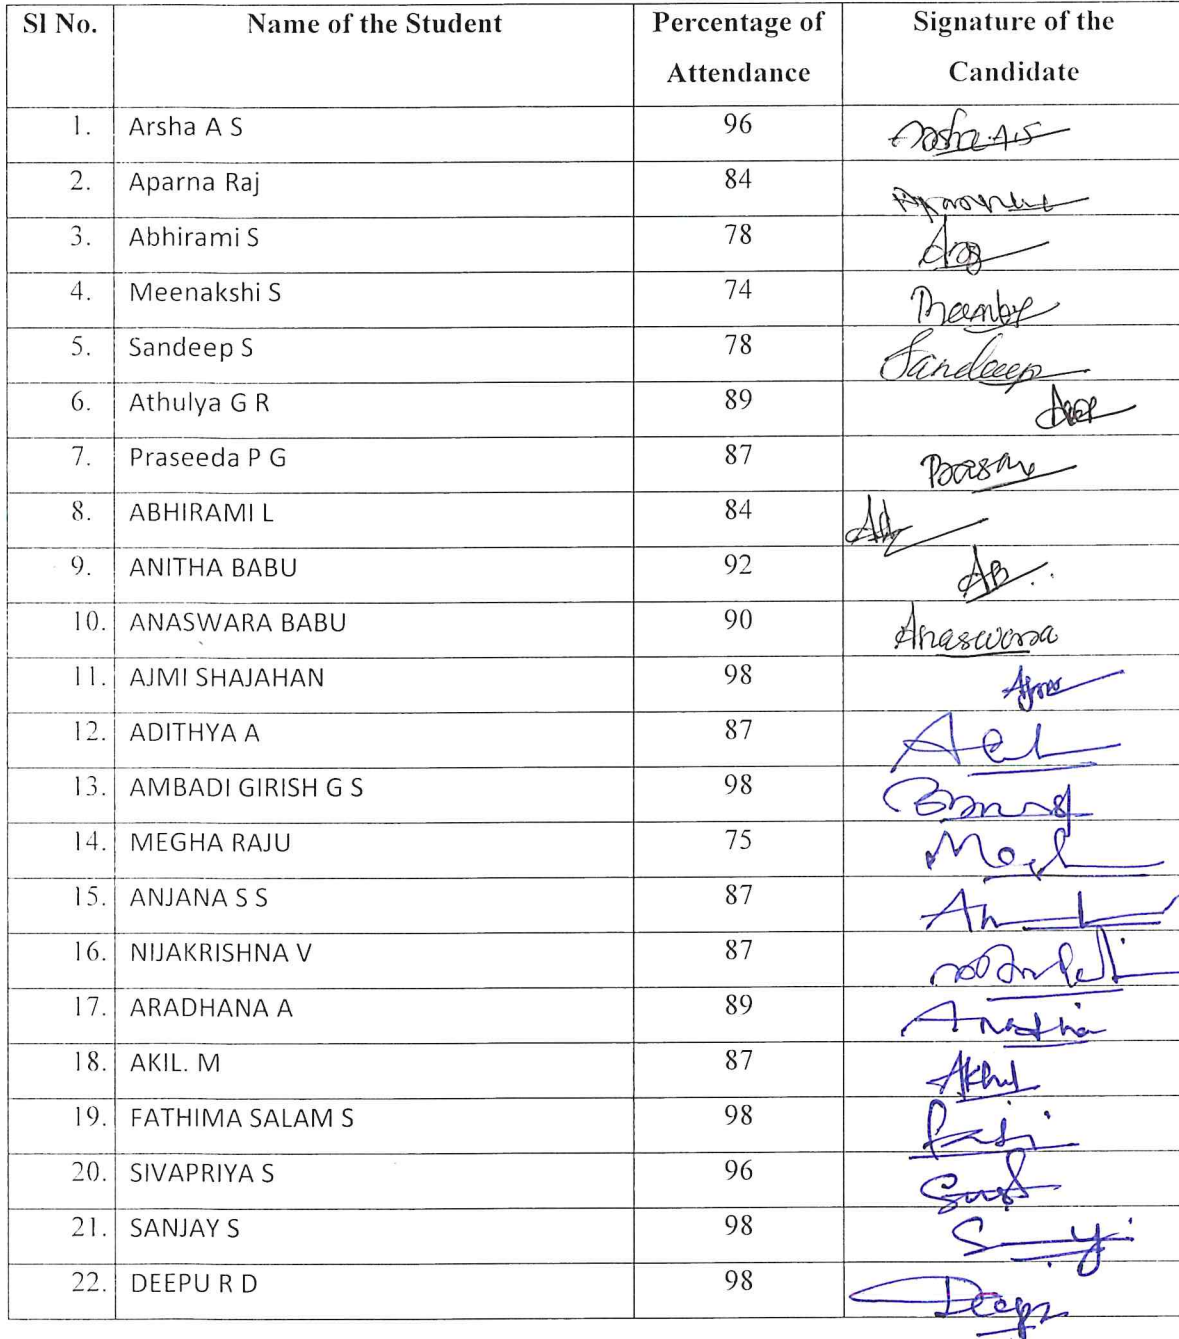 Sl No. Name of the Student Percentage of Attendance Signature of the Candidate
1. Arsha A S 96 Arsha.A.S
2. Aparna Raj 84
3. Abhirami S 78
4. Meenakshi S 74
5. Sandeep S 78 Sandeep
6. Athulya G R 89
7. Praseeda P G 87
8. ABHIRAMI L 84
9. ANITHA BABU 92 AB
10. ANASWARA BABU 90 Anaswara
11. AJMI SHAJAHAN 98
12. ADITHYA A 87
13. AMBADI GIRISH G S 98
14. MEGHA RAJU 75
15. ANJANA S S 87
16. NIJAKRISHNA V 87
17. ARADHANA A 89
18. AKIL. M 87 Akhil
19. FATHIMA SALAM S 98
20. SIVAPRIYA S 96
21. SANJAY S 98
22. DEEPU R D 98 Deepu